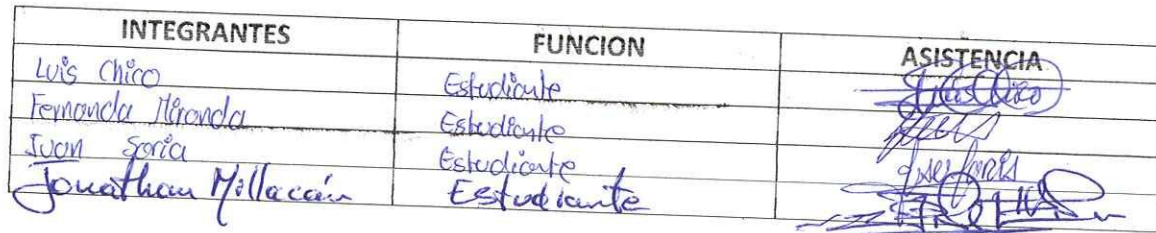 INTEGRANTES FUNCION ASISTENCIA
Luis Chico Estudiante Luis Chico
Fernanda Miranda Estudiante
Juan Soria Estudiante
Jonathan Millacán Estudiante